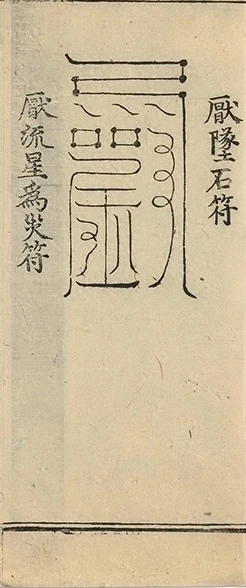 厭墜石符
厭流星為災符